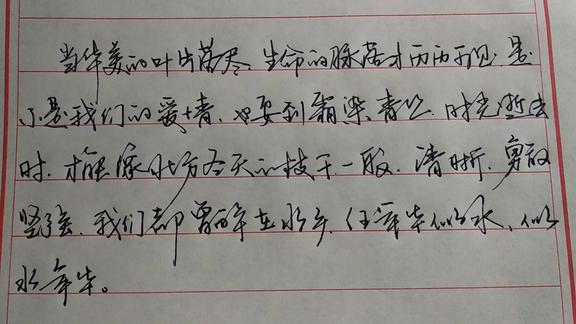 当华美的叶片落尽，生命的脉络才历历可见。是
不是我们的爱情，也要到霜染青丝，时光逝去
时，才能像北方冬天的枝干一般，清晰，勇敢
坚强。我们都曾醉在水乡，任年华似水，似
水年华。